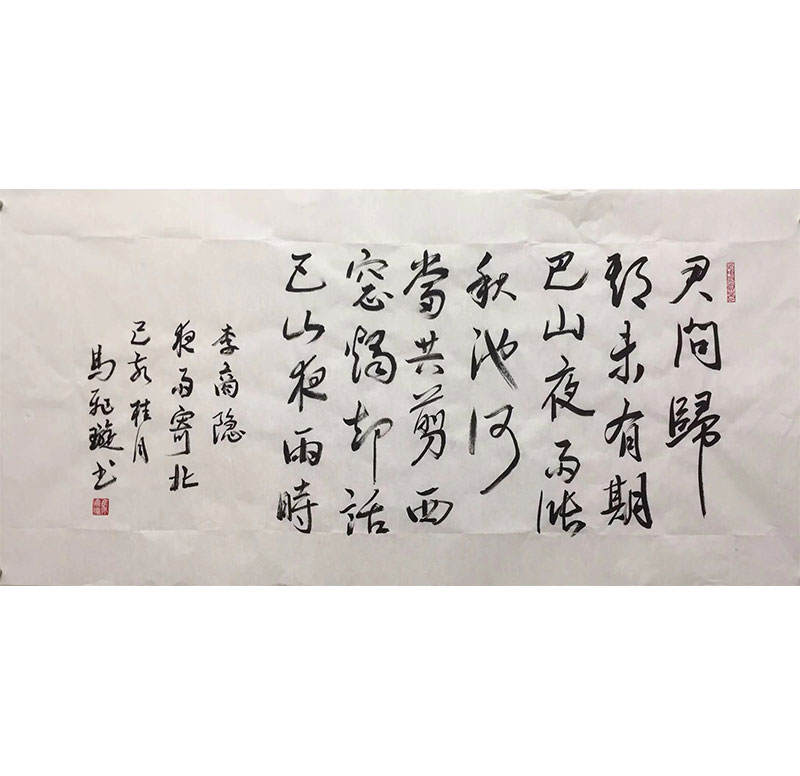 君問歸
期未有期
巴山夜雨漲
秋池何
當共剪西
窓燭却話
巴山夜雨時
李商隐
夜雨寄北
己亥桂月
馬璇书